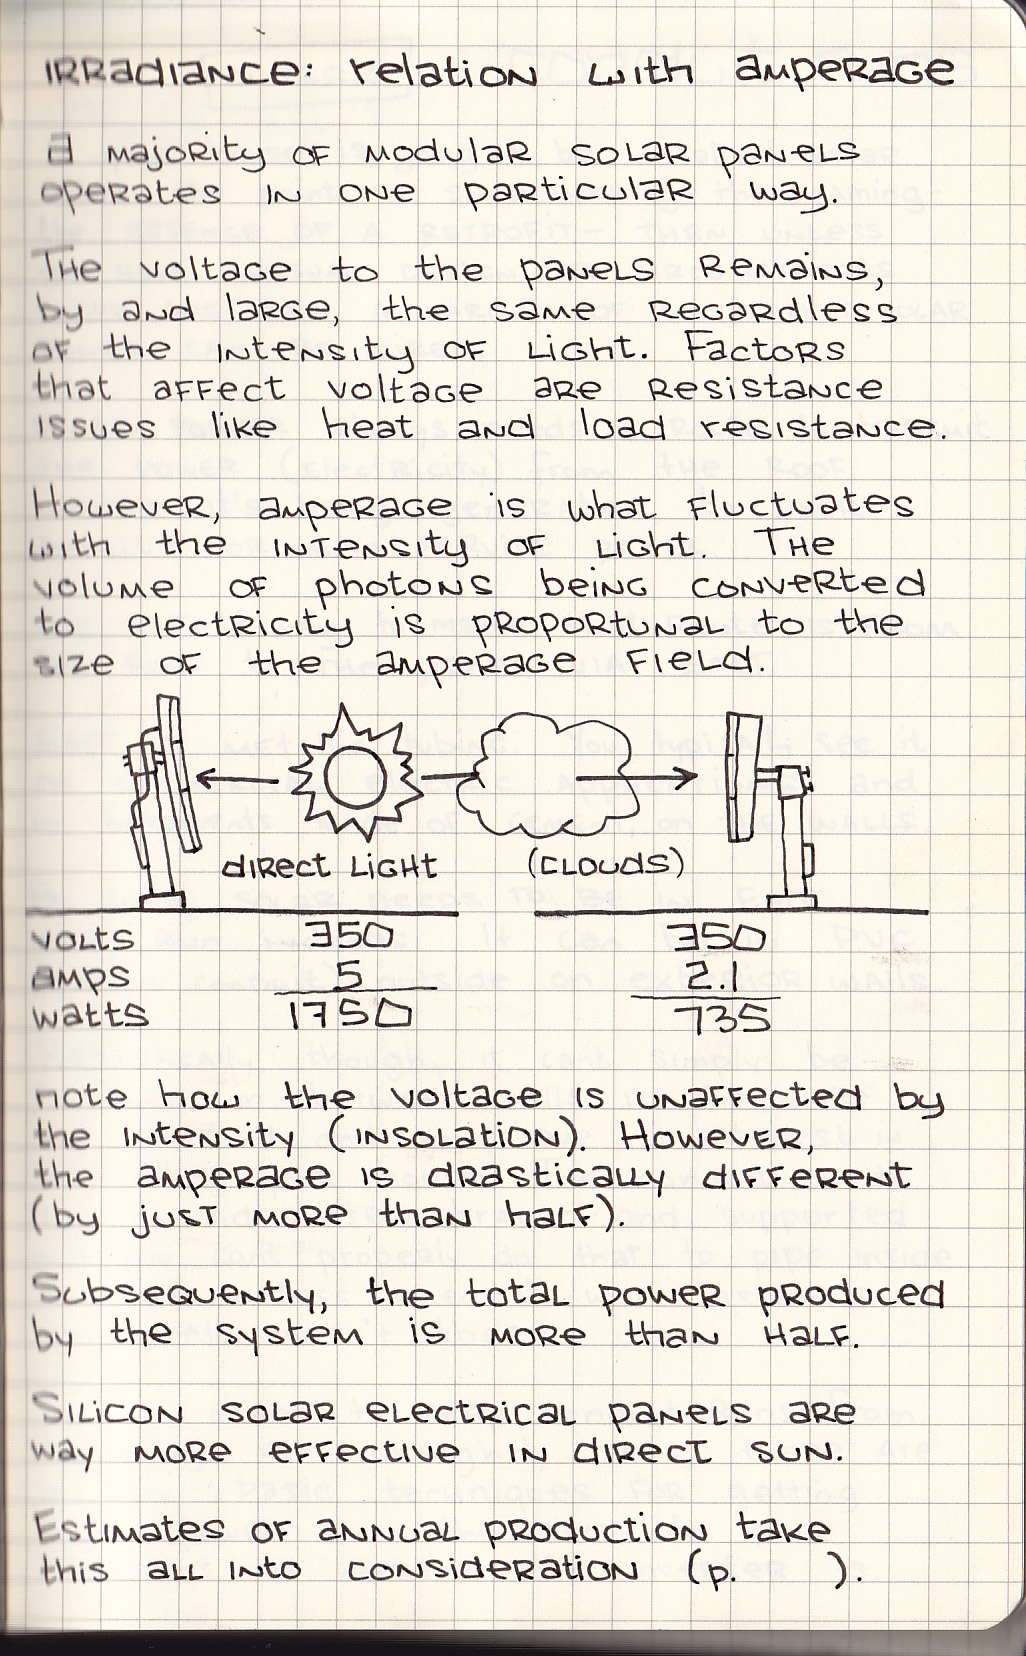 Irradiance: relation with amperage
A majority of modular solar panels
operates in one particular way.
The voltage to the panels remains,
by and large, the same regardless
of the intensity of light. Factors
that affect voltage are resistance
issues like heat and load resistance.
However, amperage is what fluctuates
with the intensity of light. The
volume of photons being converted
to electricity is proportunal to the
size of the amperage field.
direct light (clouds)
volts 350 350
amps 5 2.1
watts 1750 735
note how the voltage is unaffected by
the intensity (insolation). However,
the amperage is drastically different
(by just more than half).
Subsequently, the total power produced
by the system is more than half.
Silicon solar electrical panels are
way more effective in direct sun.
Estimates of annual production take
this all into consideration (p. ).